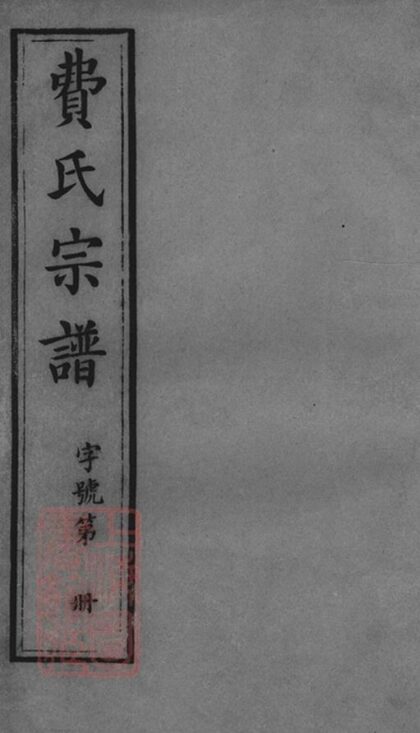 費氏宗譜
字號第 册